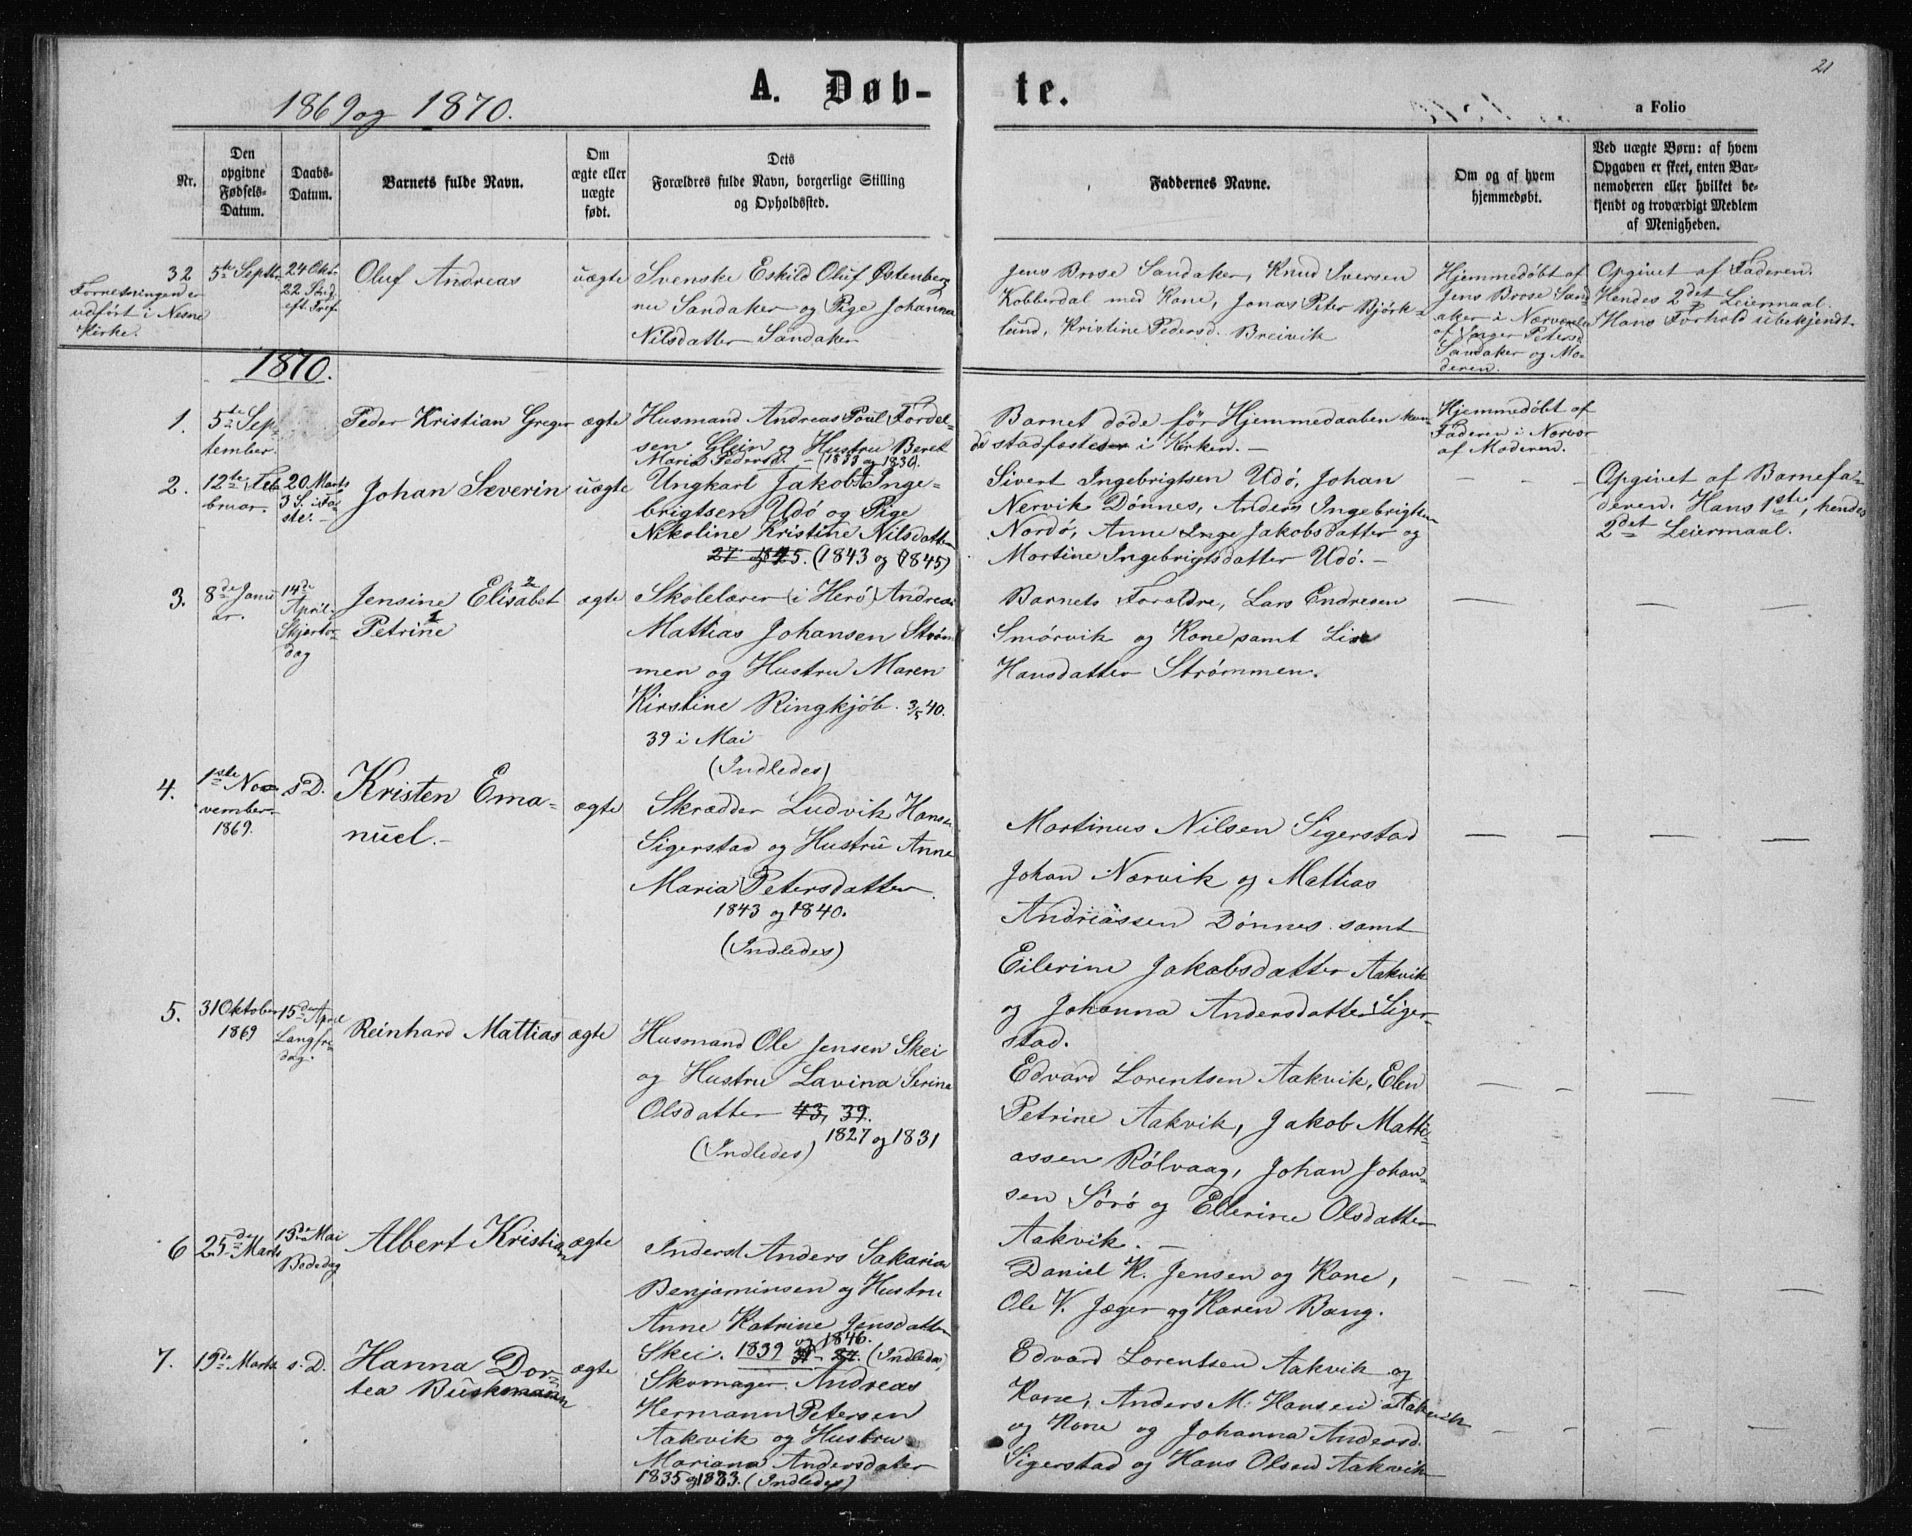 21
A. Døb-
te.
a Folio
1869 og 1870.
Nr.
Den
opgivne
Fødsels-
Datum.
Daabs-
Datum.
Barnets fulde Navn.
Om
ægte eller
uægte
født.
Dets
Forældres fulde Navn, borgerlige Stilling
og Opholdssted.
Faddernes Navne.
Om og af hvem
hjemmedøbt.
Ved uægte Børn: af hvem
Opgaven er skeet, enten Bar-
nemoderen eller hvilket be-
kjendt og troværdigt Medlem
af Menigheden.
32
Forretningen er
udført i Nesne
Kirke.
5te Septbr
24 Okt.
22 Sønd.
eft. Tref.
Oluf Andreas
uægte
Svenske Eskild Oluf Østenberg
nu Sandaker og Pige Johanna
Nilsdatter Sandaker
Jens Brose Sandaker, Knud Iversen
Kobberdal med Kone, Jonas Peter Bjørk-
lund, Kristine Pedersd. Breivik
Hjemmedøbt af
Jens Brose Sand
aker i Nærværelse
af Inger Petersd
Sandaker og Mo-
deren.
Opgivet af Faderen.
Hendes 2det Leiermaal.
Hans Forhold ubekjendt.
1870.
1.
5te Sep-
tember.
Peder Kristian Greger
ægte
Husmand Andreas Poul Tordel-
sen Glein og Hustru Beret
Maria Pedersd. – (1833 og 1830.
Barnet døde før Hjemmedaaben kun-
de stadfæstes i Kirken. –
Hjemmedøbt af
Faderen i Nærvær
af Moderen.
2.
12te Feb-
bruar.
20 Marts
3 S. i Fa-
ste. –
Johan Severin
uægte
Ungkarl Jakob Inge-
brigtsen Udø og Pige
Nikoline Kristine Nilsdatter
27 og 25. (1843 og 1845)
Sivert Ingebrigtsen Udø, Johan
Nervik Dønnes, Anders Ingebrigtsen
Nordø, Anne Inge Jakobsdatter og
Martine Ingebrigtsdatter Udø. –
Opgivet af Barnefa-
deren. Hans 1ste, hendes
2det Leiermaal.
3.
8de Janu-
ar.
14de
April
Skjertor-
dag
Jensine Elisabet
Petrine
ægte
Skolelærer (i Herø) Andreas
Mattias Johansen Strøm-
men og Hustru Maren
Kirstine Ringkjøb. 3/5 40.
39 i Mai
(Indledes)
Barnets Forældre, Lars Endresen
Smørvik og Kone samt Lise
Hansdatter Strømmen.
4.
1ste No-
vember
1869.
s D.
Kristen Ema-
nuel. –
ægte
Skrædder Ludvik Hansen
Sigerstad og Hustru Anne
Maria Petersdatter.
1843 og 1840.
(Indledes)
Martinus Nilsen Sigerstad
Johan Nærvik og Mattias
Andreassen Dønnes samt
Eilerine Jakobsdatter Aakvik
og Johanna Andersdatter Siger-
stad.
5.
31 Oktober
1869
15de April
Langfre-
dag.
Reinhard Mattias
ægte
Husmand Ole Jensen Skei
og Hustru Lavina Serina
Olsdatter 43, 39.
1827 og 1831
(Indledes)
Edvard Lorentsen Aakvik, Elen
Petrine Aakvik, Jakob Matti-
assen Rølvaag, Johan Johan-
sen Sørø og Ellerine Olsdatter
Aakvik. –
6
25de Marts
13de Mai
Bededag
Albert Kristian
ægte
Inderst Anders Sakarias
Benjaminsen og Hustru
Anne Katrine Jensdatter
Skei. 1839 og 1846. (Indledes)
Daniel K. Jensen og Kone,
Ole V. Jæger og Karen Bang.
7.
19de Marts
s. D.
Hanna Dor-
tea Buskmann
ægte
Skomager Andreas
Hermann Petersen
Aakvik og Hustru
Mariana Andersdatter
1835 og 1833. (Indledes)
Edvard Lorentsen Aakvik og
Kone, Anders M. Hansen Aakvik
og Kone og Johanna Andersd.
Sigerstad og Hans Olsen Aakvik